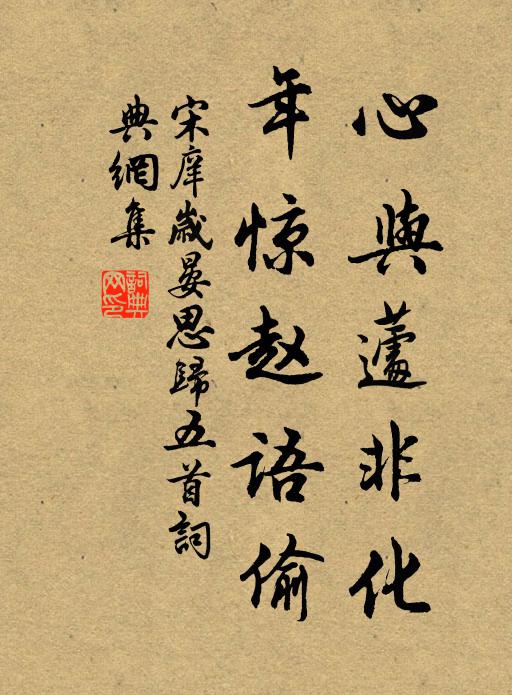 心與蘧非化
年惊赵語偷
宋庠歲晏思歸五首詞
典網集
詞典
网印